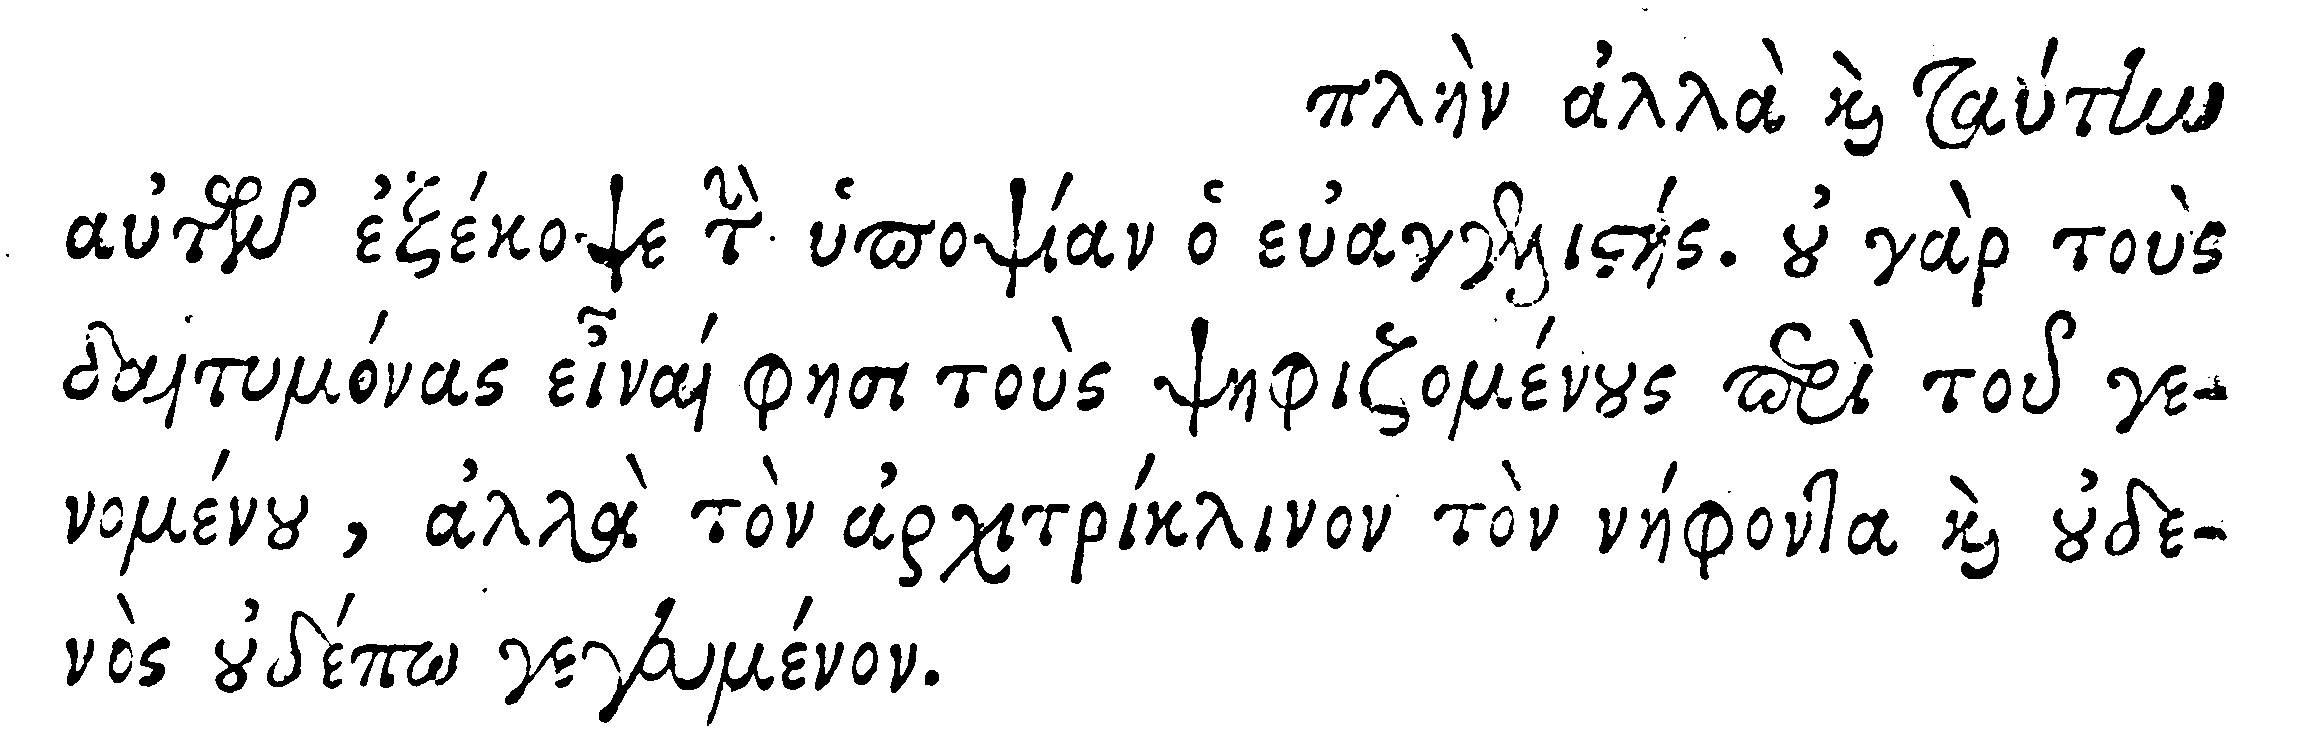 πλὴν ἀλλὰ καὶ ταύτην
αὐτῶν ἐξέκοψε τὴν ὑποψίαν ὁ εὐαγγελιστής. οὐ γὰρ τοὺς
δαιτυμόνας εἶναί φησι τοὺς ψηφιζομένους περὶ τοῦ γε-
νομένου, ἀλλὰ τὸν ἀρχιτρίκλινον τὸν νήφοντα καὶ οὐδε-
νὸς οὐδέπω γεγευμένον.